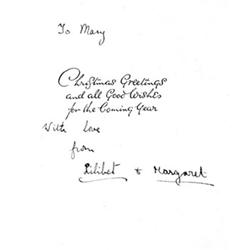 To Mary
Christmas Greetings
and all Good Wishes
for the Coming Year
With Love
from
Lilibet & Margaret